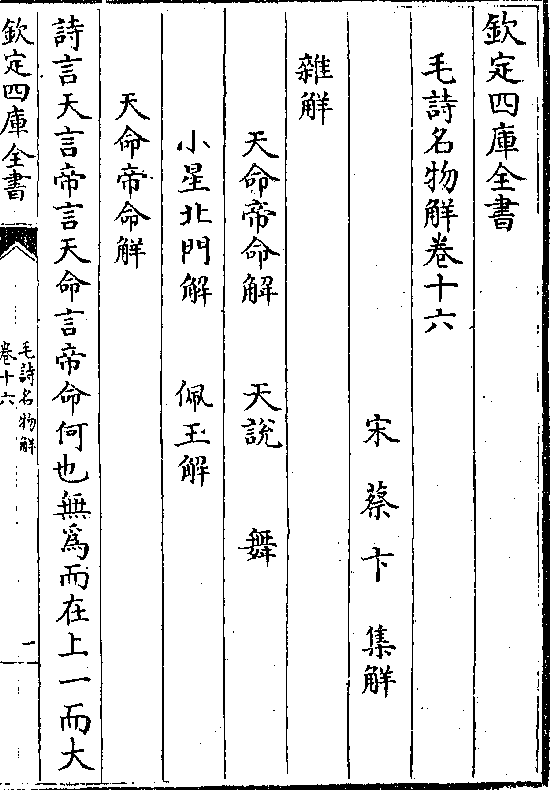 欽定四庫全書
毛詩名物解卷十六
宋 蔡卞 集解
雜解
天命帝命解 天說 舞
小星北門解 佩玉解
天命帝命解
詩言天言帝言天命言帝命何也無為而在上一而大
欽定四庫全書
毛詩名物解
卷十六
一